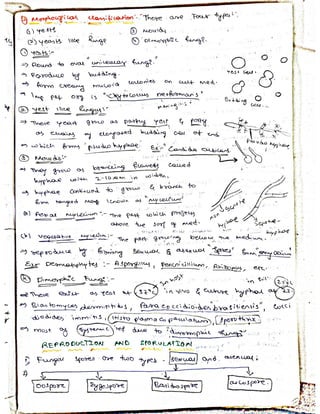 ① Morphological classification:- There are four types:-
(1) Yeasts (3) Moulds
(2) Yeasts like fungi (4) Dimorphic fungi.
① Yeasts:-
→ Round to oval unicellular fungi.
→ Reproduce by budding.
→ form creamy mucoid colonies on cult med.
→ Imp pat org is "Cryptococcus neoformans"
② Yeast like fungi:-
→ These yeast grow as partly yeast & partly
as chains of elongated budding cells at end
→ which forms "pseudohyphae. Ex:- Candida albicans
Pseudohyphae
③ Moulds:-
→ They grow as branching filaments called
hyphae with 2-10 µm in width.
→ hyphae continued to grow & branch to
form tangled mass known as "mycelium"
(a) Aerial mycelium:- The part which projects
above the surf of med.
(b) Vegetative mycelium:- The part growing below medium.
→ reproduce by forming sexual & asexual "spores" from
Ex:- Dermatophytes:- Aspergillus, Penicillium, Rhizopus, etc.
④ Dimorphic Fungi:-
→ These exist as yeast at 37°C in vivo & culture hyphae at 22°C
→ Blastomyces dermatitidis, Paracoccidioides brasiliensis, Cocci
dioides immitis, Histoplasma capsulatum, Sporothrix
→ most of systemic inf due to "dimorphic fungi"
REPRODUCTION AND SPORULATION
① Fungal spores are two types:- Sexual and asexual:-
Oospore Zygospore Basidiospore Ascospore.